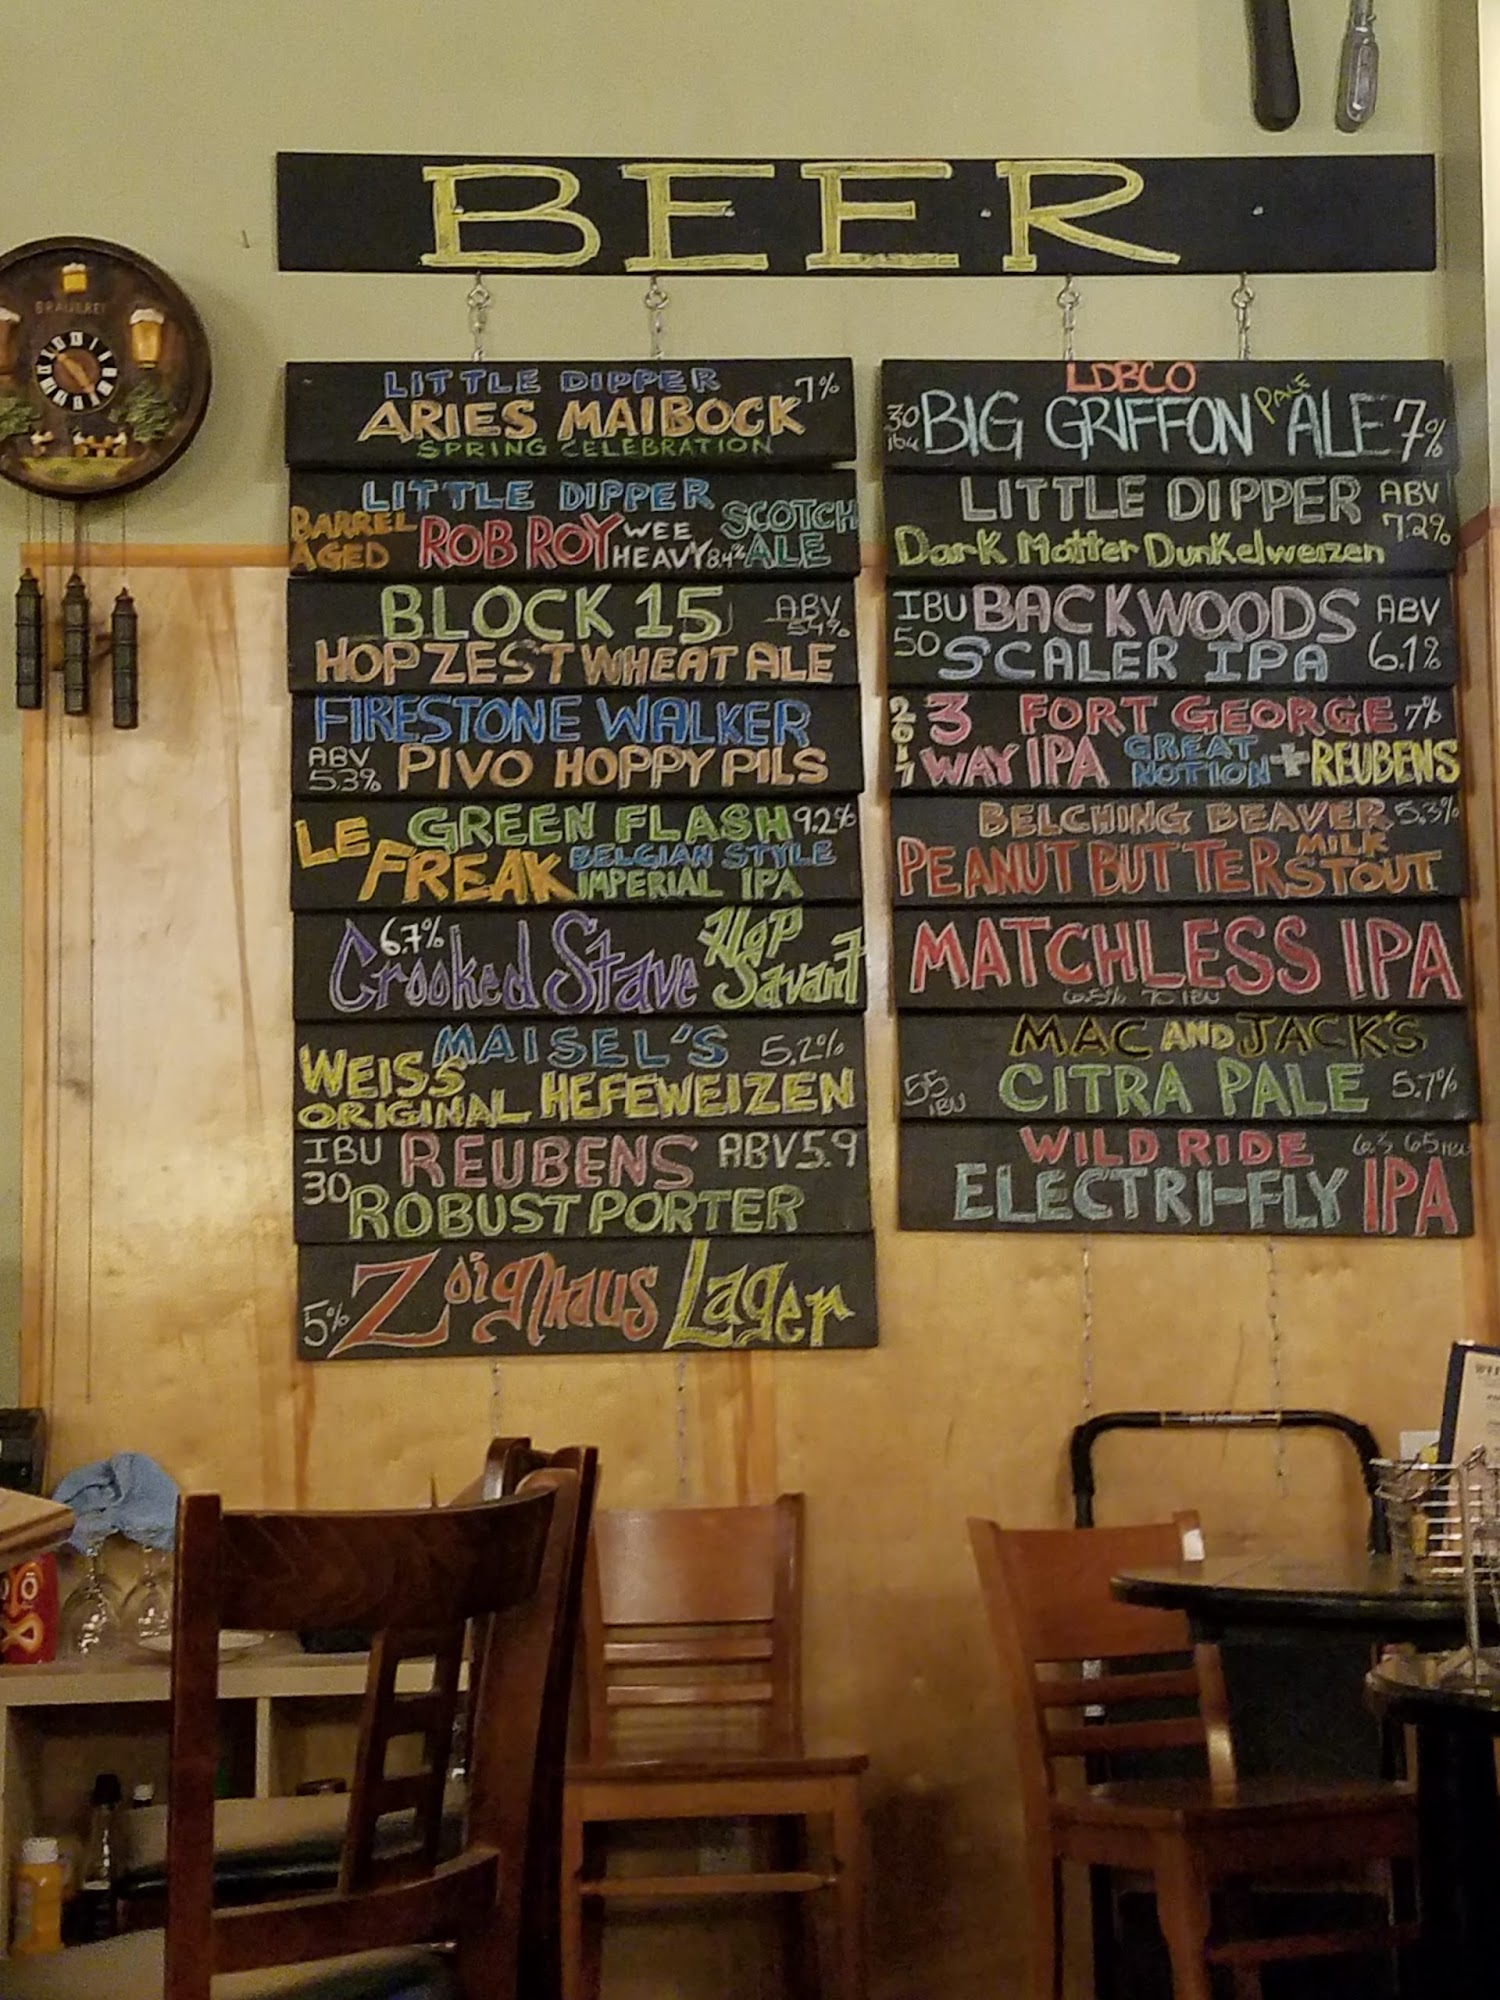 BEER
BRAUEREI
LITTLE DIPPER 7%
ARIES MAIBOCK
SPRING CELEBRATION
LITTLE DIPPER
BARREL AGED ROB ROY WEE HEAVY 8.4% SCOTCH ALE
BLOCK 15 ABV 5.4%
HOP ZEST WHEAT ALE
FIRESTONE WALKER
ABV 5.3% PIVO HOPPY PILS
GREEN FLASH 9.2%
LE FREAK BELGIAN STYLE IMPERIAL IPA
6.7%
Crooked Stave Hop Savant
MAISEL'S 5.2%
WEISS ORIGINAL HEFEWEIZEN
IBU 30 REUBENS ABV 5.9
ROBUST PORTER
5% Zoiglhaus Lager
LDBCO
30 ibu BIG GRIFFON PALE ALE 7%
LITTLE DIPPER ABV 7.2%
Dark Matter Dunkelweizen
IBU 50 BACKWOODS ABV 6.1%
SCALER IPA
2017 3 FORT GEORGE 7%
WAY IPA GREAT NOTION + REUBENS
BELCHING BEAVER 5.3%
PEANUT BUTTER MILK STOUT
MATCHLESS IPA
6.5% 70 IBU
MAC AND JACK'S
55 IBU CITRA PALE 5.7%
WILD RIDE 6.3 65 IBU
ELECTRI-FLY IPA